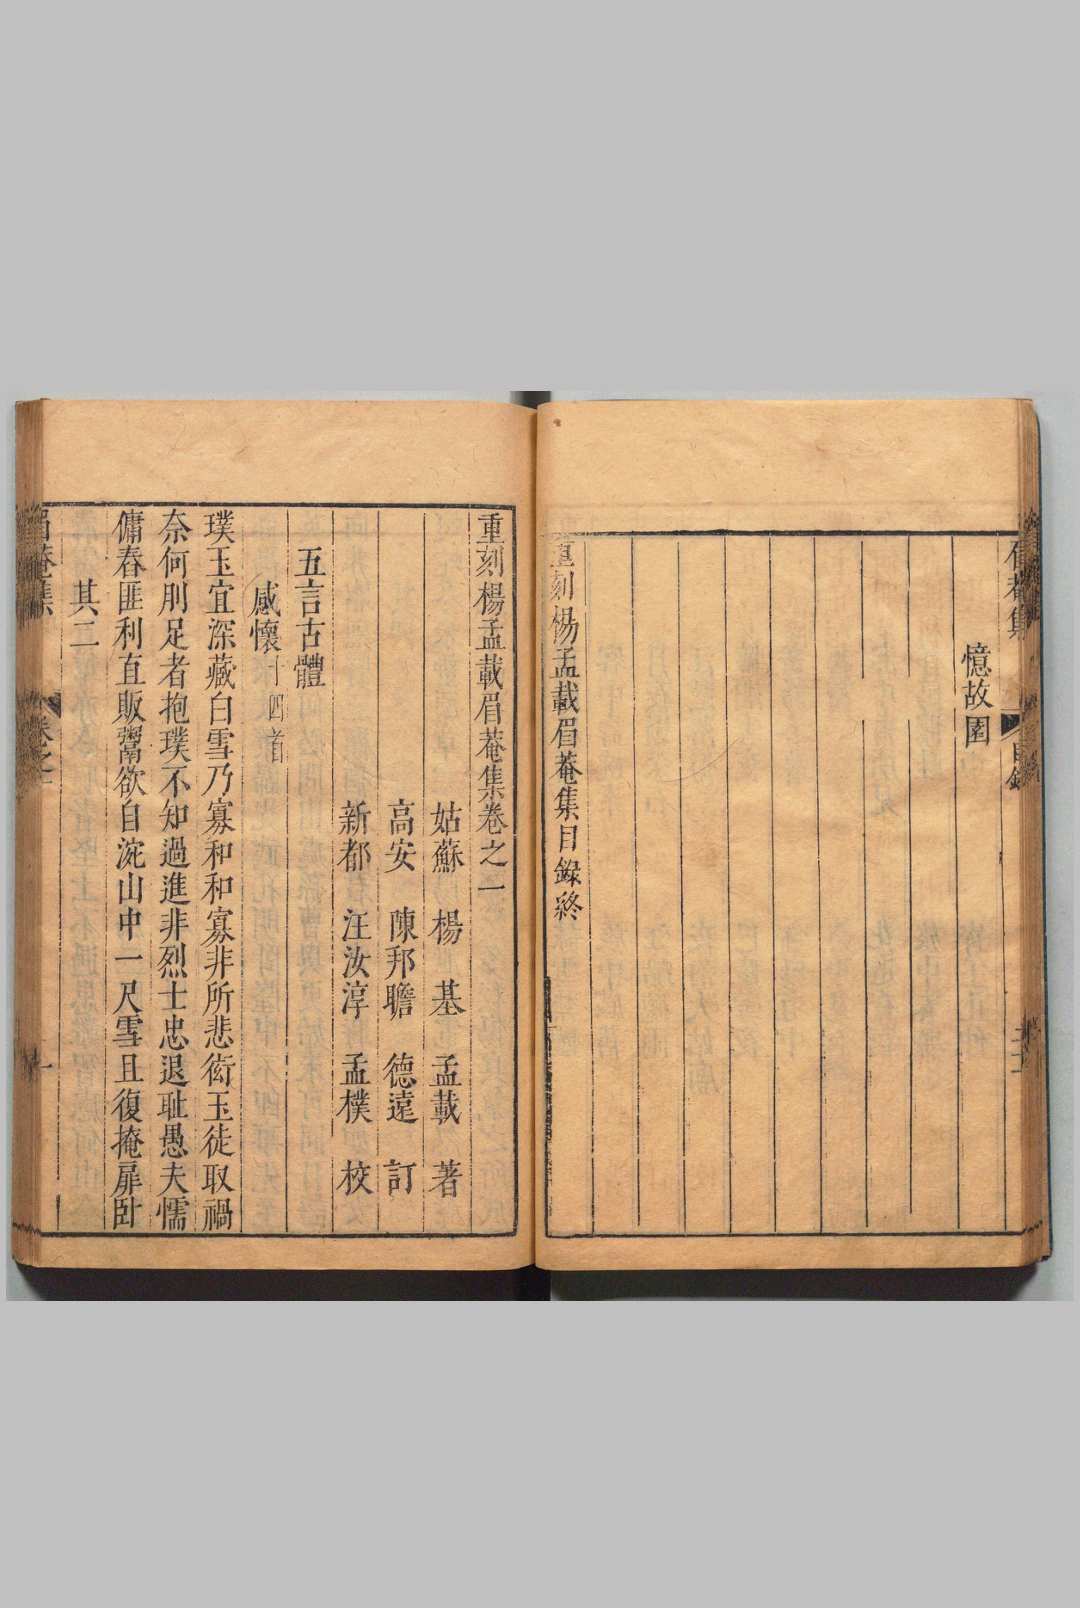 眉菴集 目錄
憶故園
重刻楊孟載眉菴集目錄終
重刻楊孟載眉菴集卷之一
姑蘇 楊 基 孟載 著
高安 陳邦瞻 德遠 訂
新都 汪汝淳 孟樸 校
五言古體
感懷十四首
璞玉宜深藏白雪乃寡和和寡非所悲衒玉徒取禍
奈何刖足者抱璞不知過進非烈士忠退耻愚夫懦
傭舂匪利直販鬻欲自浼山中一尺雪且復掩扉卧
其二
眉菴集 卷之一